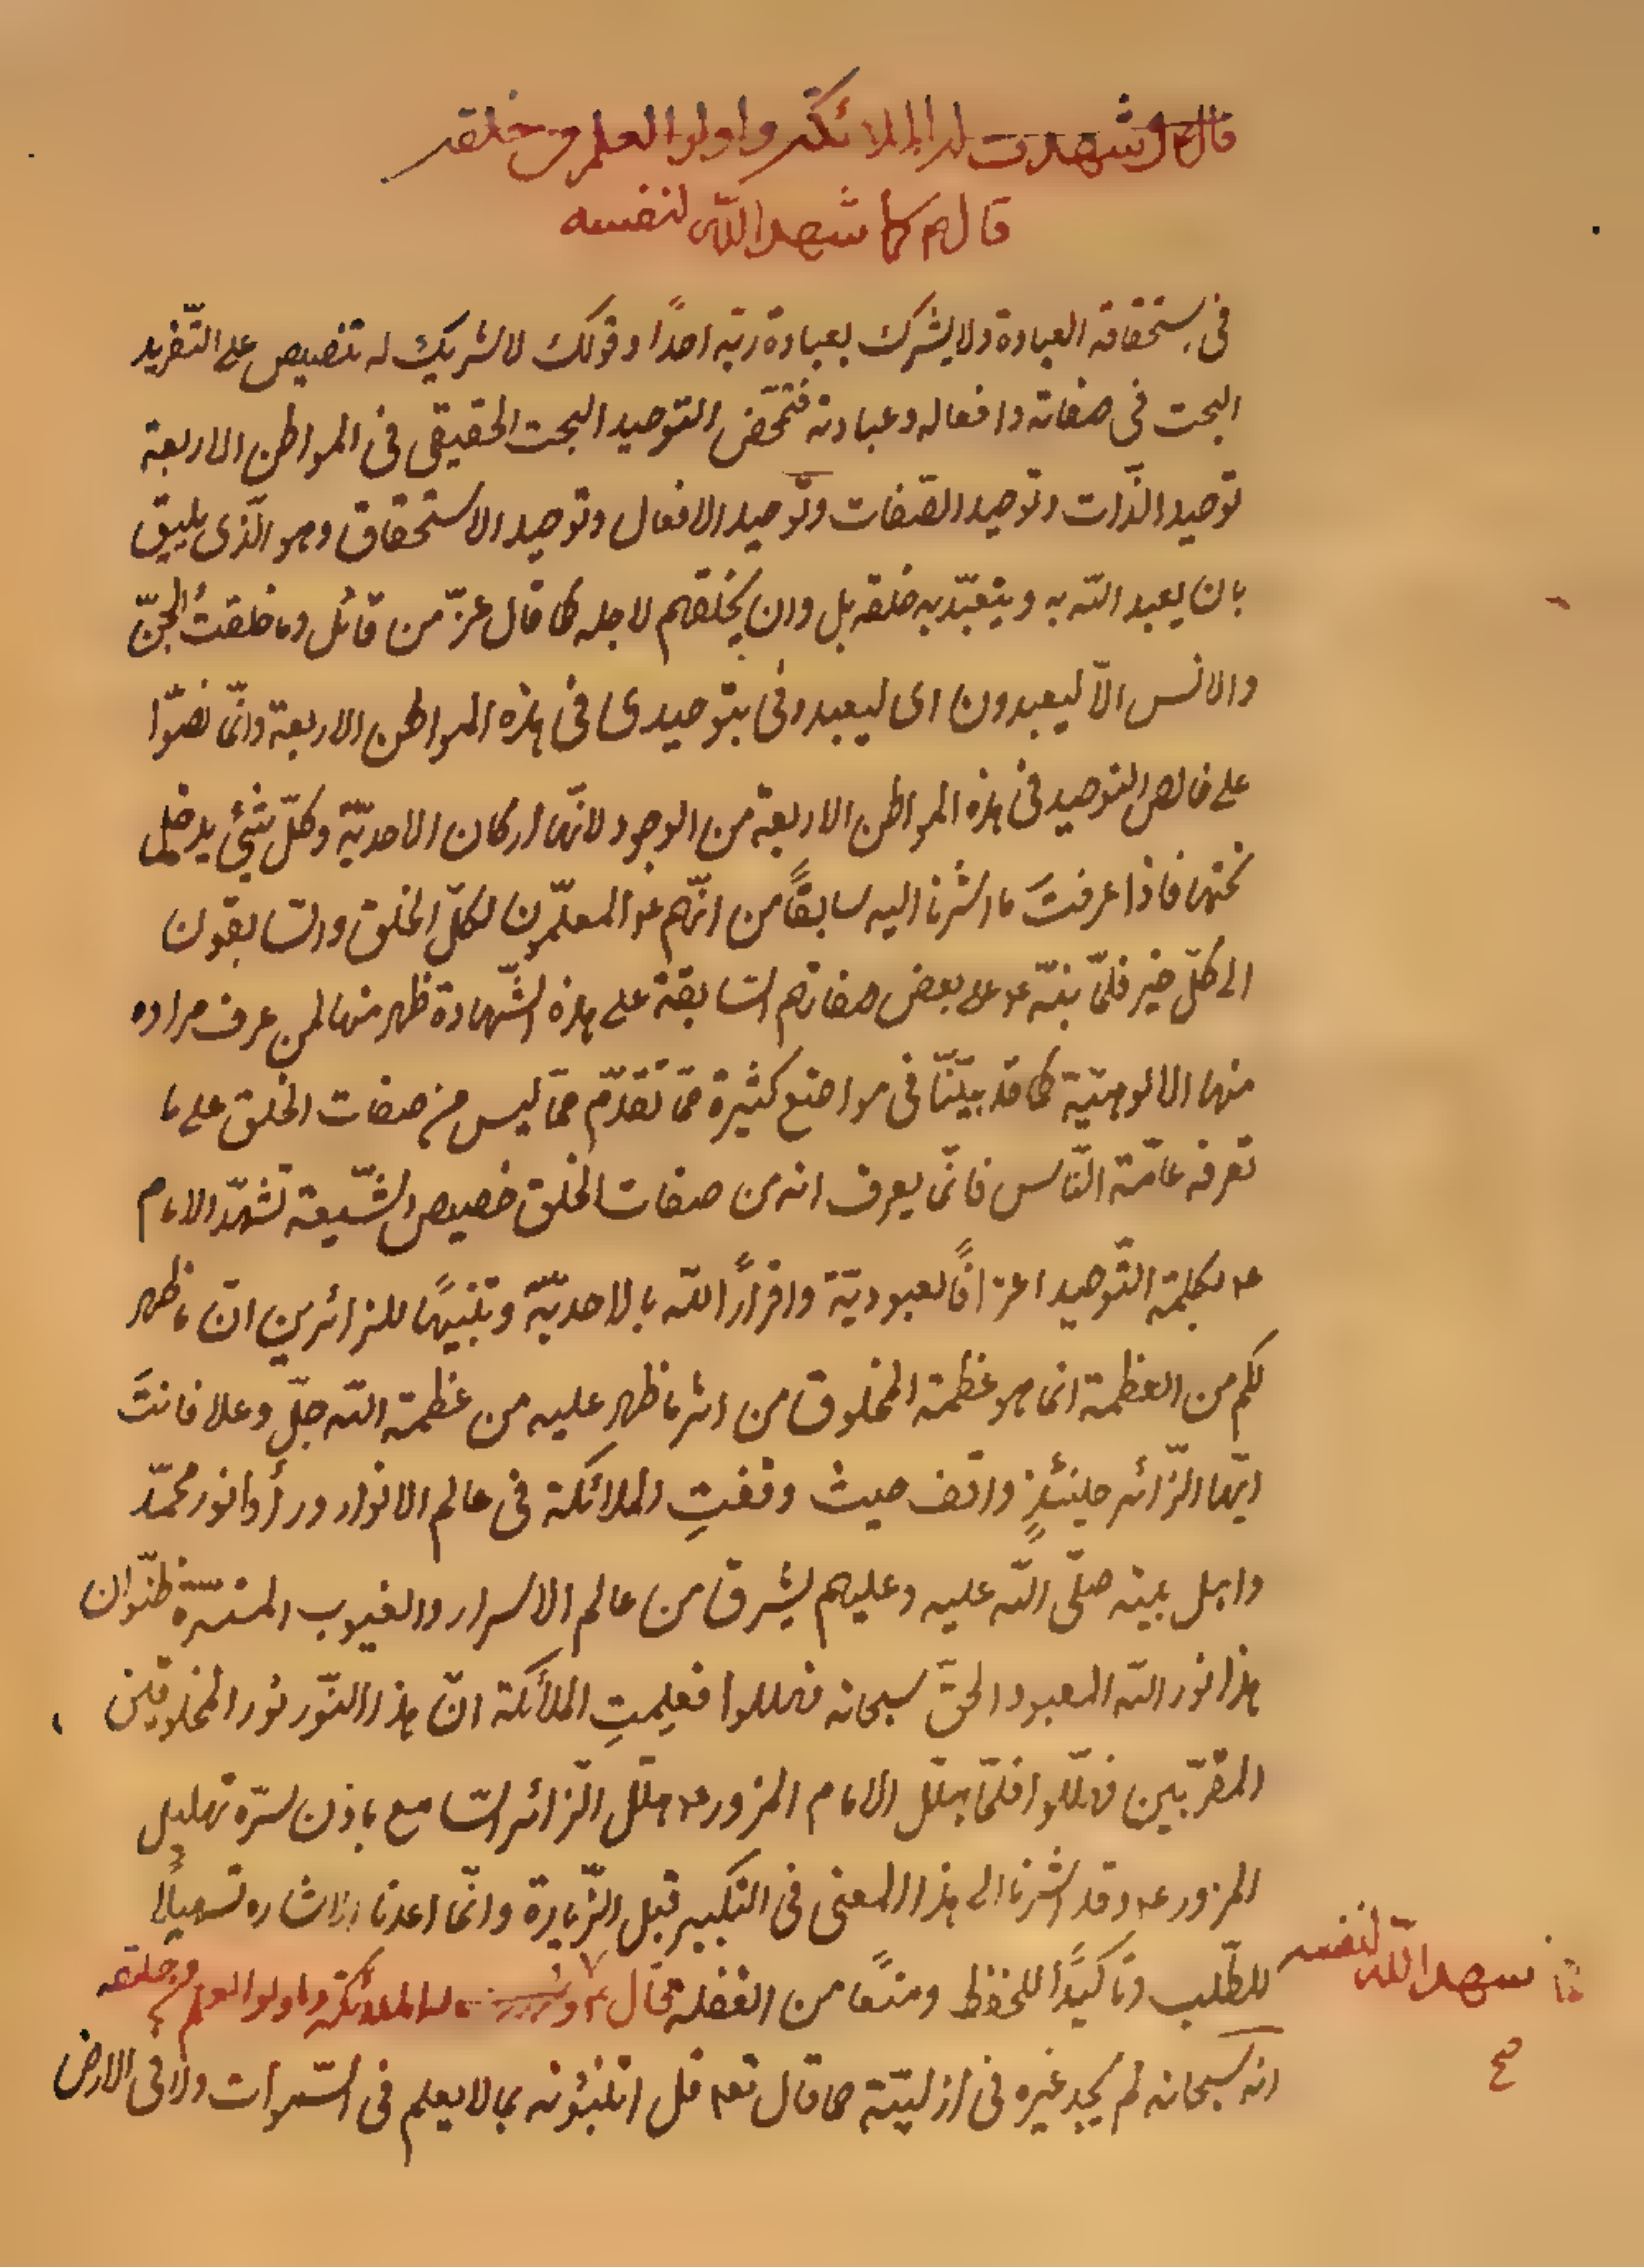 قال ع وشهدت له الملائكته واولوا العلم من خلقه
قال ع كما شهد الله لنفسه
فى استحقاقه العبادة ولا يشرك بعبادة ربّه احدًا وقولك لا شريك له تنصيص على التّفريد
البحت فى صفاته وافعاله وعبادته فتمحّض التوحيد البحت الحقيقى فى المواطن الاربعة
توحيد الذّات وتوحيد الصّفات وتوحيد الافعال وتوحيد الاستحقاق وهو الّذى يليق
بان يعبد الله به ويتعبّد به خلقه بل وان يخلقهم لاجله كما قال عزّ من قائل وما خلقتُ الجنّ
والانس الّا ليعبدون اى ليعبدونى بتوحيدى فى هذه المواطن الاربعة وانّما نصّوا
على خالص التوحيد فى هذه المواطن الاربعة من الوجود لانّها اركان الاحديّة وكلّ شئ يدخل
تحتها فاذا عرفتَ ما اشرنا اليه سابقًا من انّهم ع المعلّمون لكلّ الخلق والسّابقون
الى كلّ خير فلمّا نبّه ع على بعض صفاتهم السّابقة على هذه الشّهادة ظهر منها لمن عرف مراده
منها الالوهيّة كما قد بيّنّا فى مواضع كثيرة ممّا تقدّم ممّا ليس من صفات الخلق على ما
تعرفه عامّة النّاس فانّما يعرف انه من صفات الخلق خصيص الشّيعة تشهّد الامام
ع بكلمة التّوحيد اعترافًا بعبوديّة واقرارًا لله بالاحديّة وتنبيهًا للزائرين انّ ما ظهر
لكم من العظمة انما هو عظمة المخلوق من اثر ما ظهر عليه من عظمة الله جلّ وعلا فانتَ
ايّها الزّائر حينئذٍ واقف حيث وقفتِ الملائكة فى عالم الانوار ورأوا نور محمّد
واهل بيته صلّى الله عليه وعليهم يشرق من عالم الاسرار والغيوب المستسرّة ظنّوا ان
هذا نور الله المعبود الحقّ سبحانه فهللوا فعلمتِ الملائكة انّ هذا النّور نور المخلوقين
المقرّبين فهلّلوا فلمّا هلّل الامام المزور ع هلّل الزّائر السّامع باذن سرّه تهليل
المزور ع وقد اشرنا الى هذا المعنى فى التكبير قبل الزّيارة وانّما اعدنا الاشاره تسهيلًا
للطّلب وتأكيدًا للحفظ ومنعًا من الغفلة قال ع وشهدت له الملائكته واولوا العلم من خلقه
شهد الله لنفسه
صح
انه سبحانه لم يجد غيره فى ازليّته كما قال تعا قل اتنبّؤنه بما لا يعلم فى السّموات ولا فى الارض